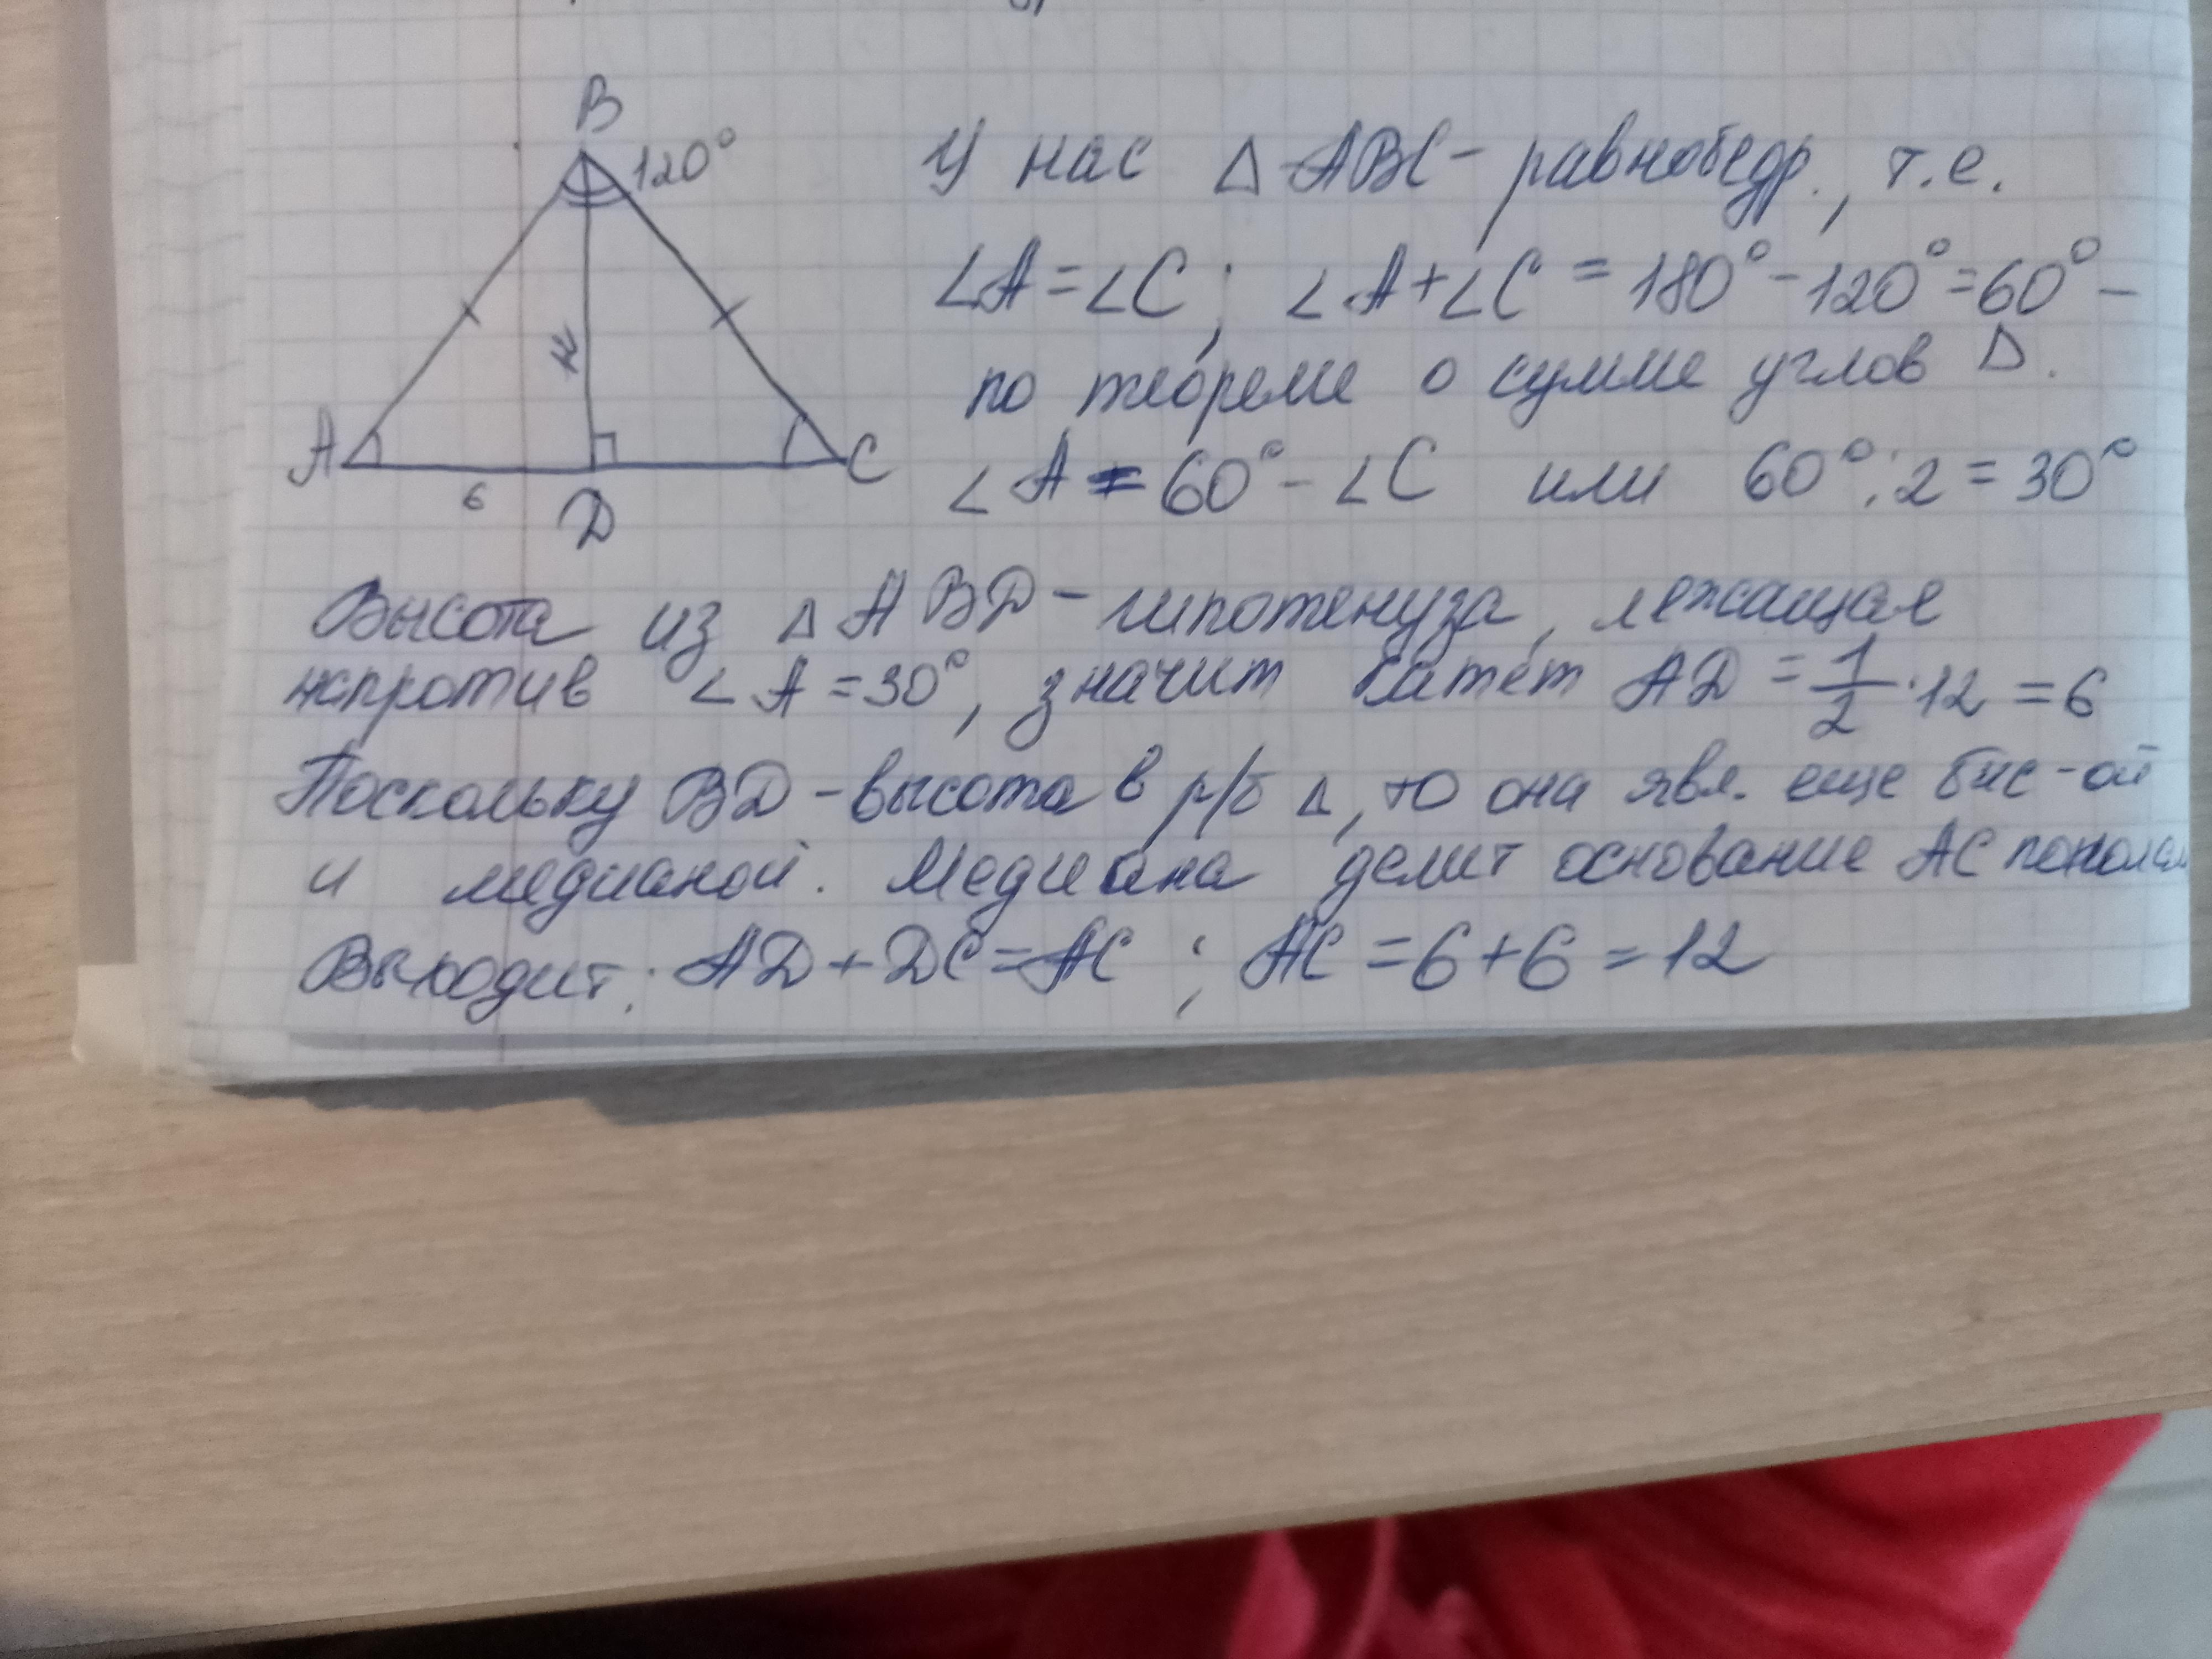 B
120°
У нас Δ ABC - равнобедр., т.е.
∠A = ∠C; ∠A + ∠C = 180° - 120° = 60° -
по теореме о сумме углов Δ.
A
6
D
C
∠A = 60° - ∠C или 60° : 2 = 30°
Высота из Δ ABD - гипотенуза, лежащая
напротив ∠A = 30°, значит катет AD = 1/2 · 12 = 6
Поскольку BD - высота в р/б Δ, то она явл. еще бис-ой
и медианой. Медиана делит основание AC пополам
Выходит: AD + DC = AC ; AC = 6 + 6 = 12